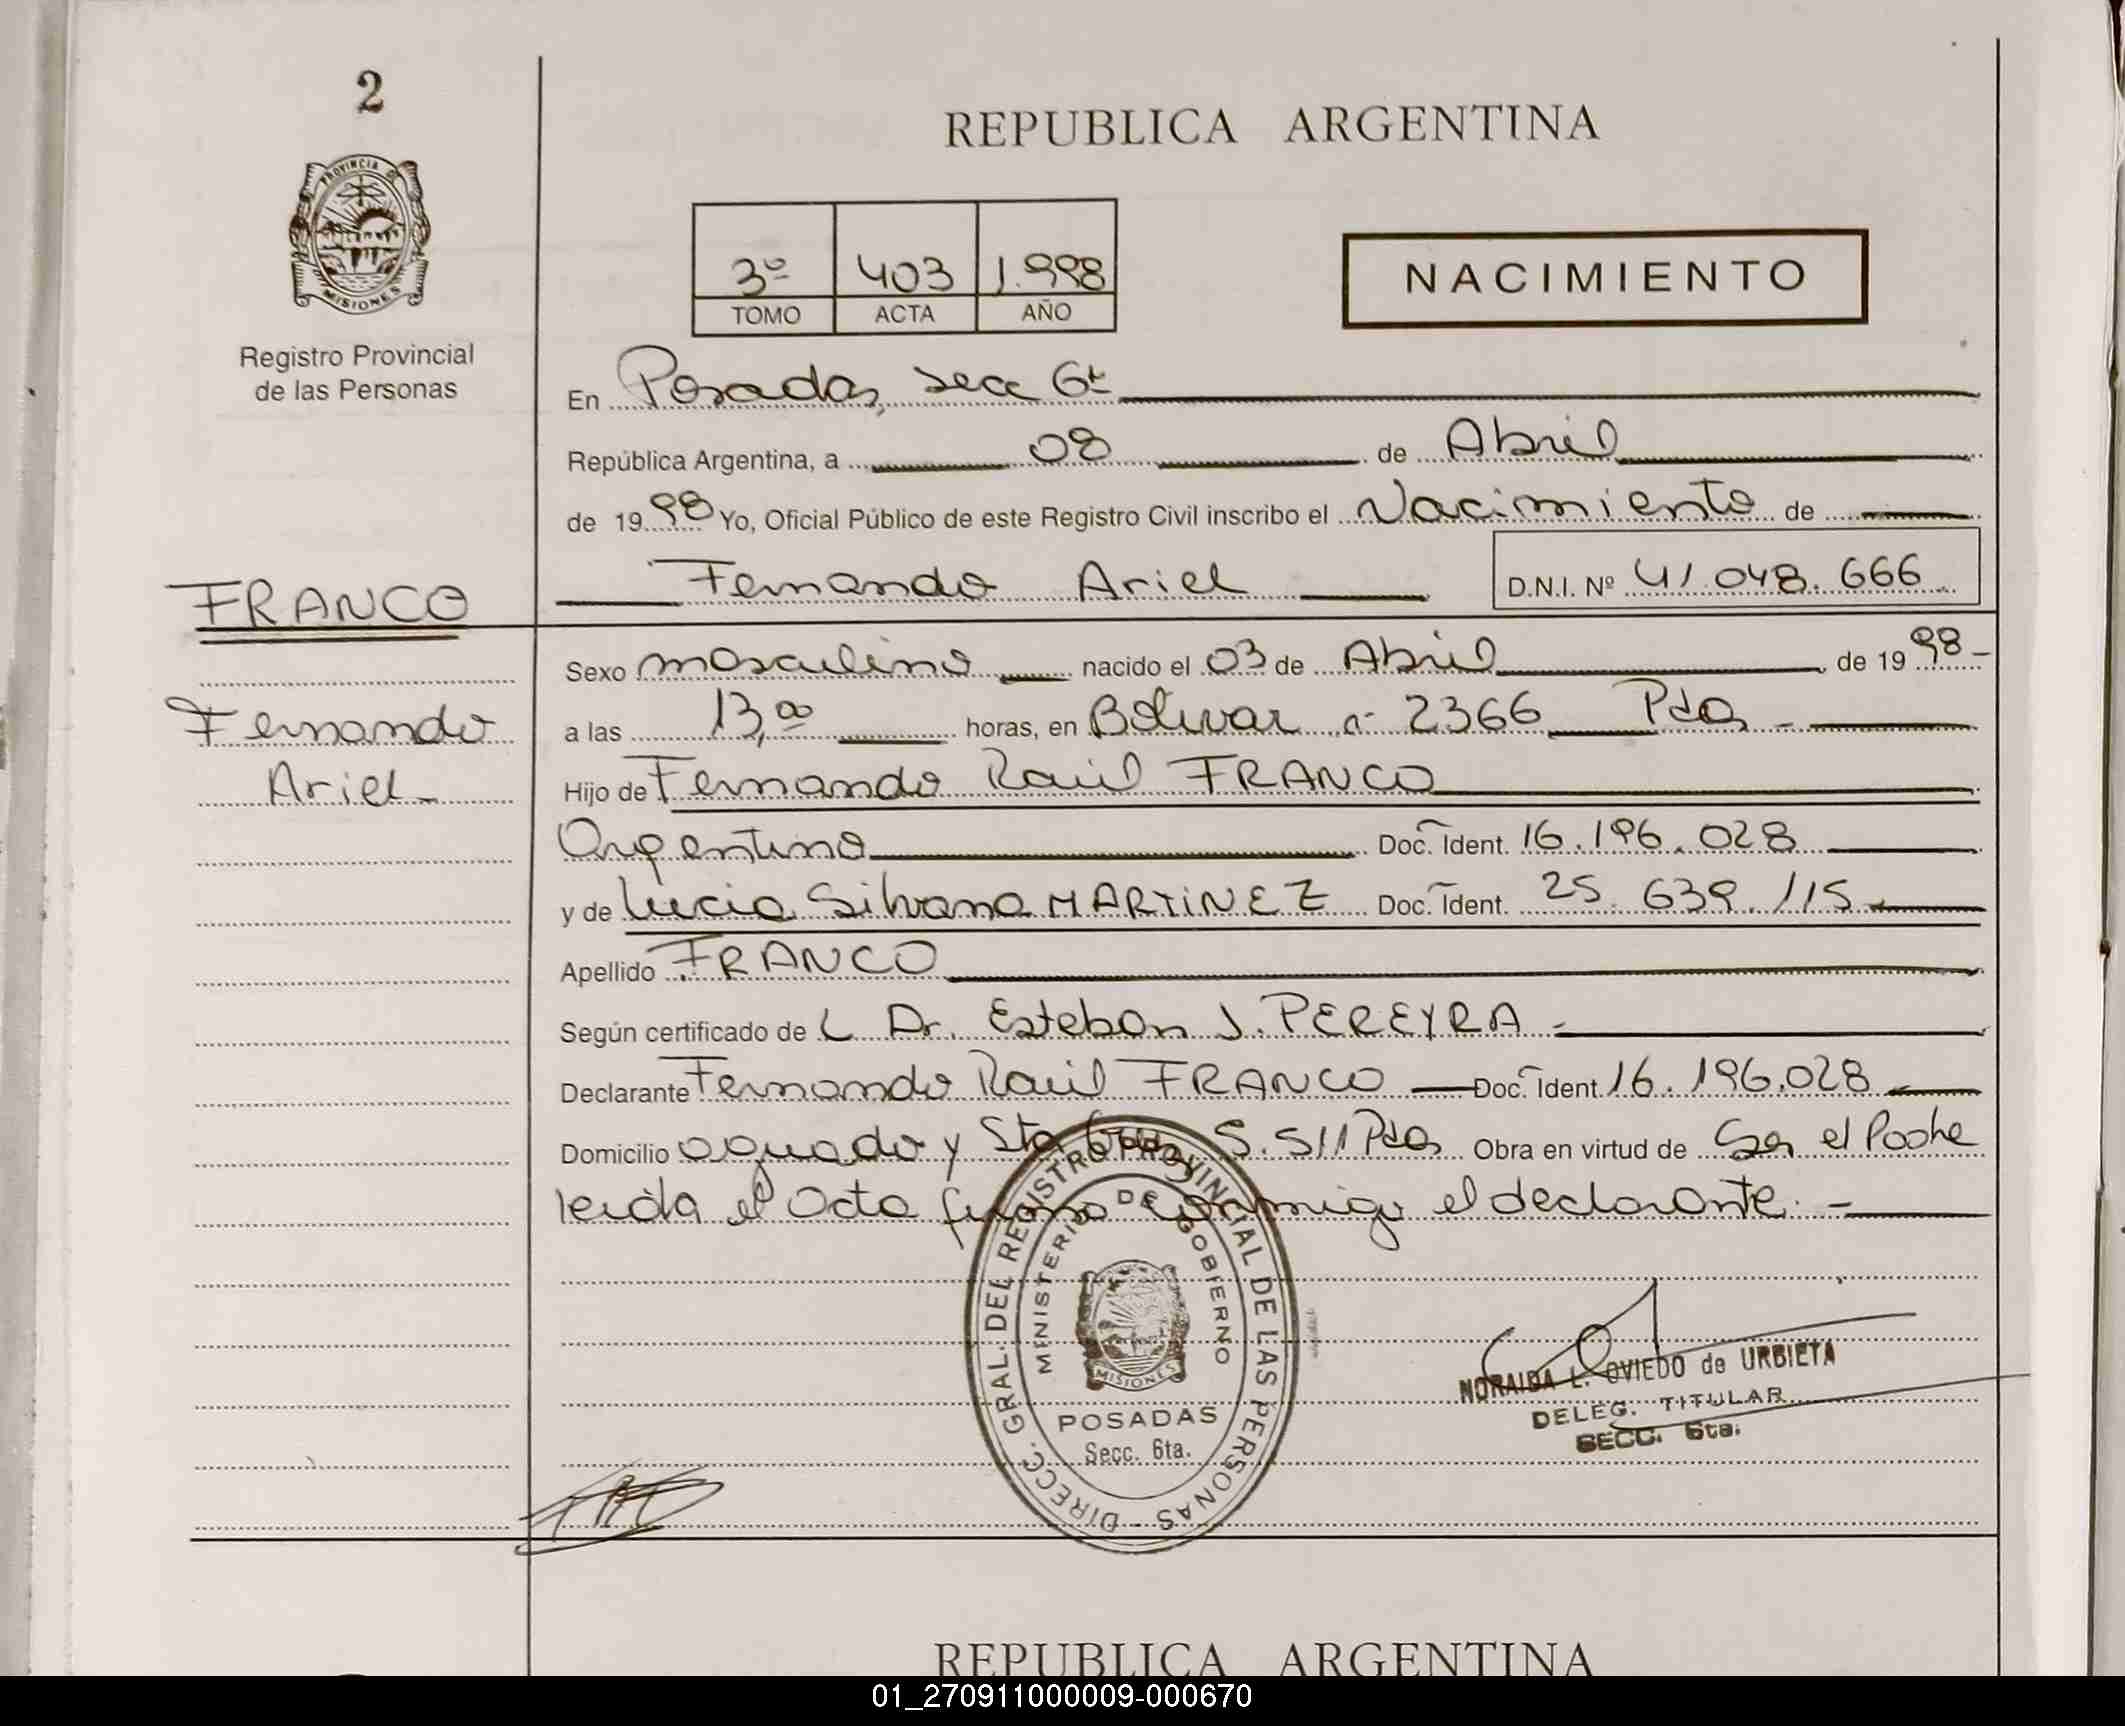 2
PROVINCIA DE
MISIONES
Registro Provincial
de las Personas
REPUBLICA ARGENTINA
3º 403 1.998
TOMO ACTA AÑO
NACIMIENTO
En Posadas, secc 6ta
República Argentina, a 08 de Abril
de 1998 Yo, Oficial Público de este Registro Civil inscribo el Nacimiento de
Fernando Ariel D.N.I. Nº 41.048.666
FRANCO
Fernando
Ariel
Sexo masculino nacido el 03 de Abril de 1998
a las 13,00 horas, en Bolivar nº 2366 Pdas
Hijo de Fernando Raúl FRANCO
Argentino Doc. Ident. 16.196.028
y de Lucia Silvana MARTINEZ Doc. Ident. 25.639.115
Apellido FRANCO
Según certificado de L Dr. Esteban J. PEREYRA
Declarante Fernando Raúl FRANCO Doc. Ident. 16.196.028
Domicilio aguado y Sta Cruz S. 511 Pdas Obra en virtud de Ser el Padre
leida el acta firma conmigo el declarante.
DIRECC. GRAL. DEL REGISTRO PROVINCIAL DE LAS PERSONAS
MINISTERIO DE GOBIERNO
MISIONES
POSADAS
Secc. 6ta.
NORAIDA L. OVIEDO de URBIETA
DELEG. TITULAR
SECC. 6ta.
REPUBLICA ARGENTINA
01_270911000009-000670